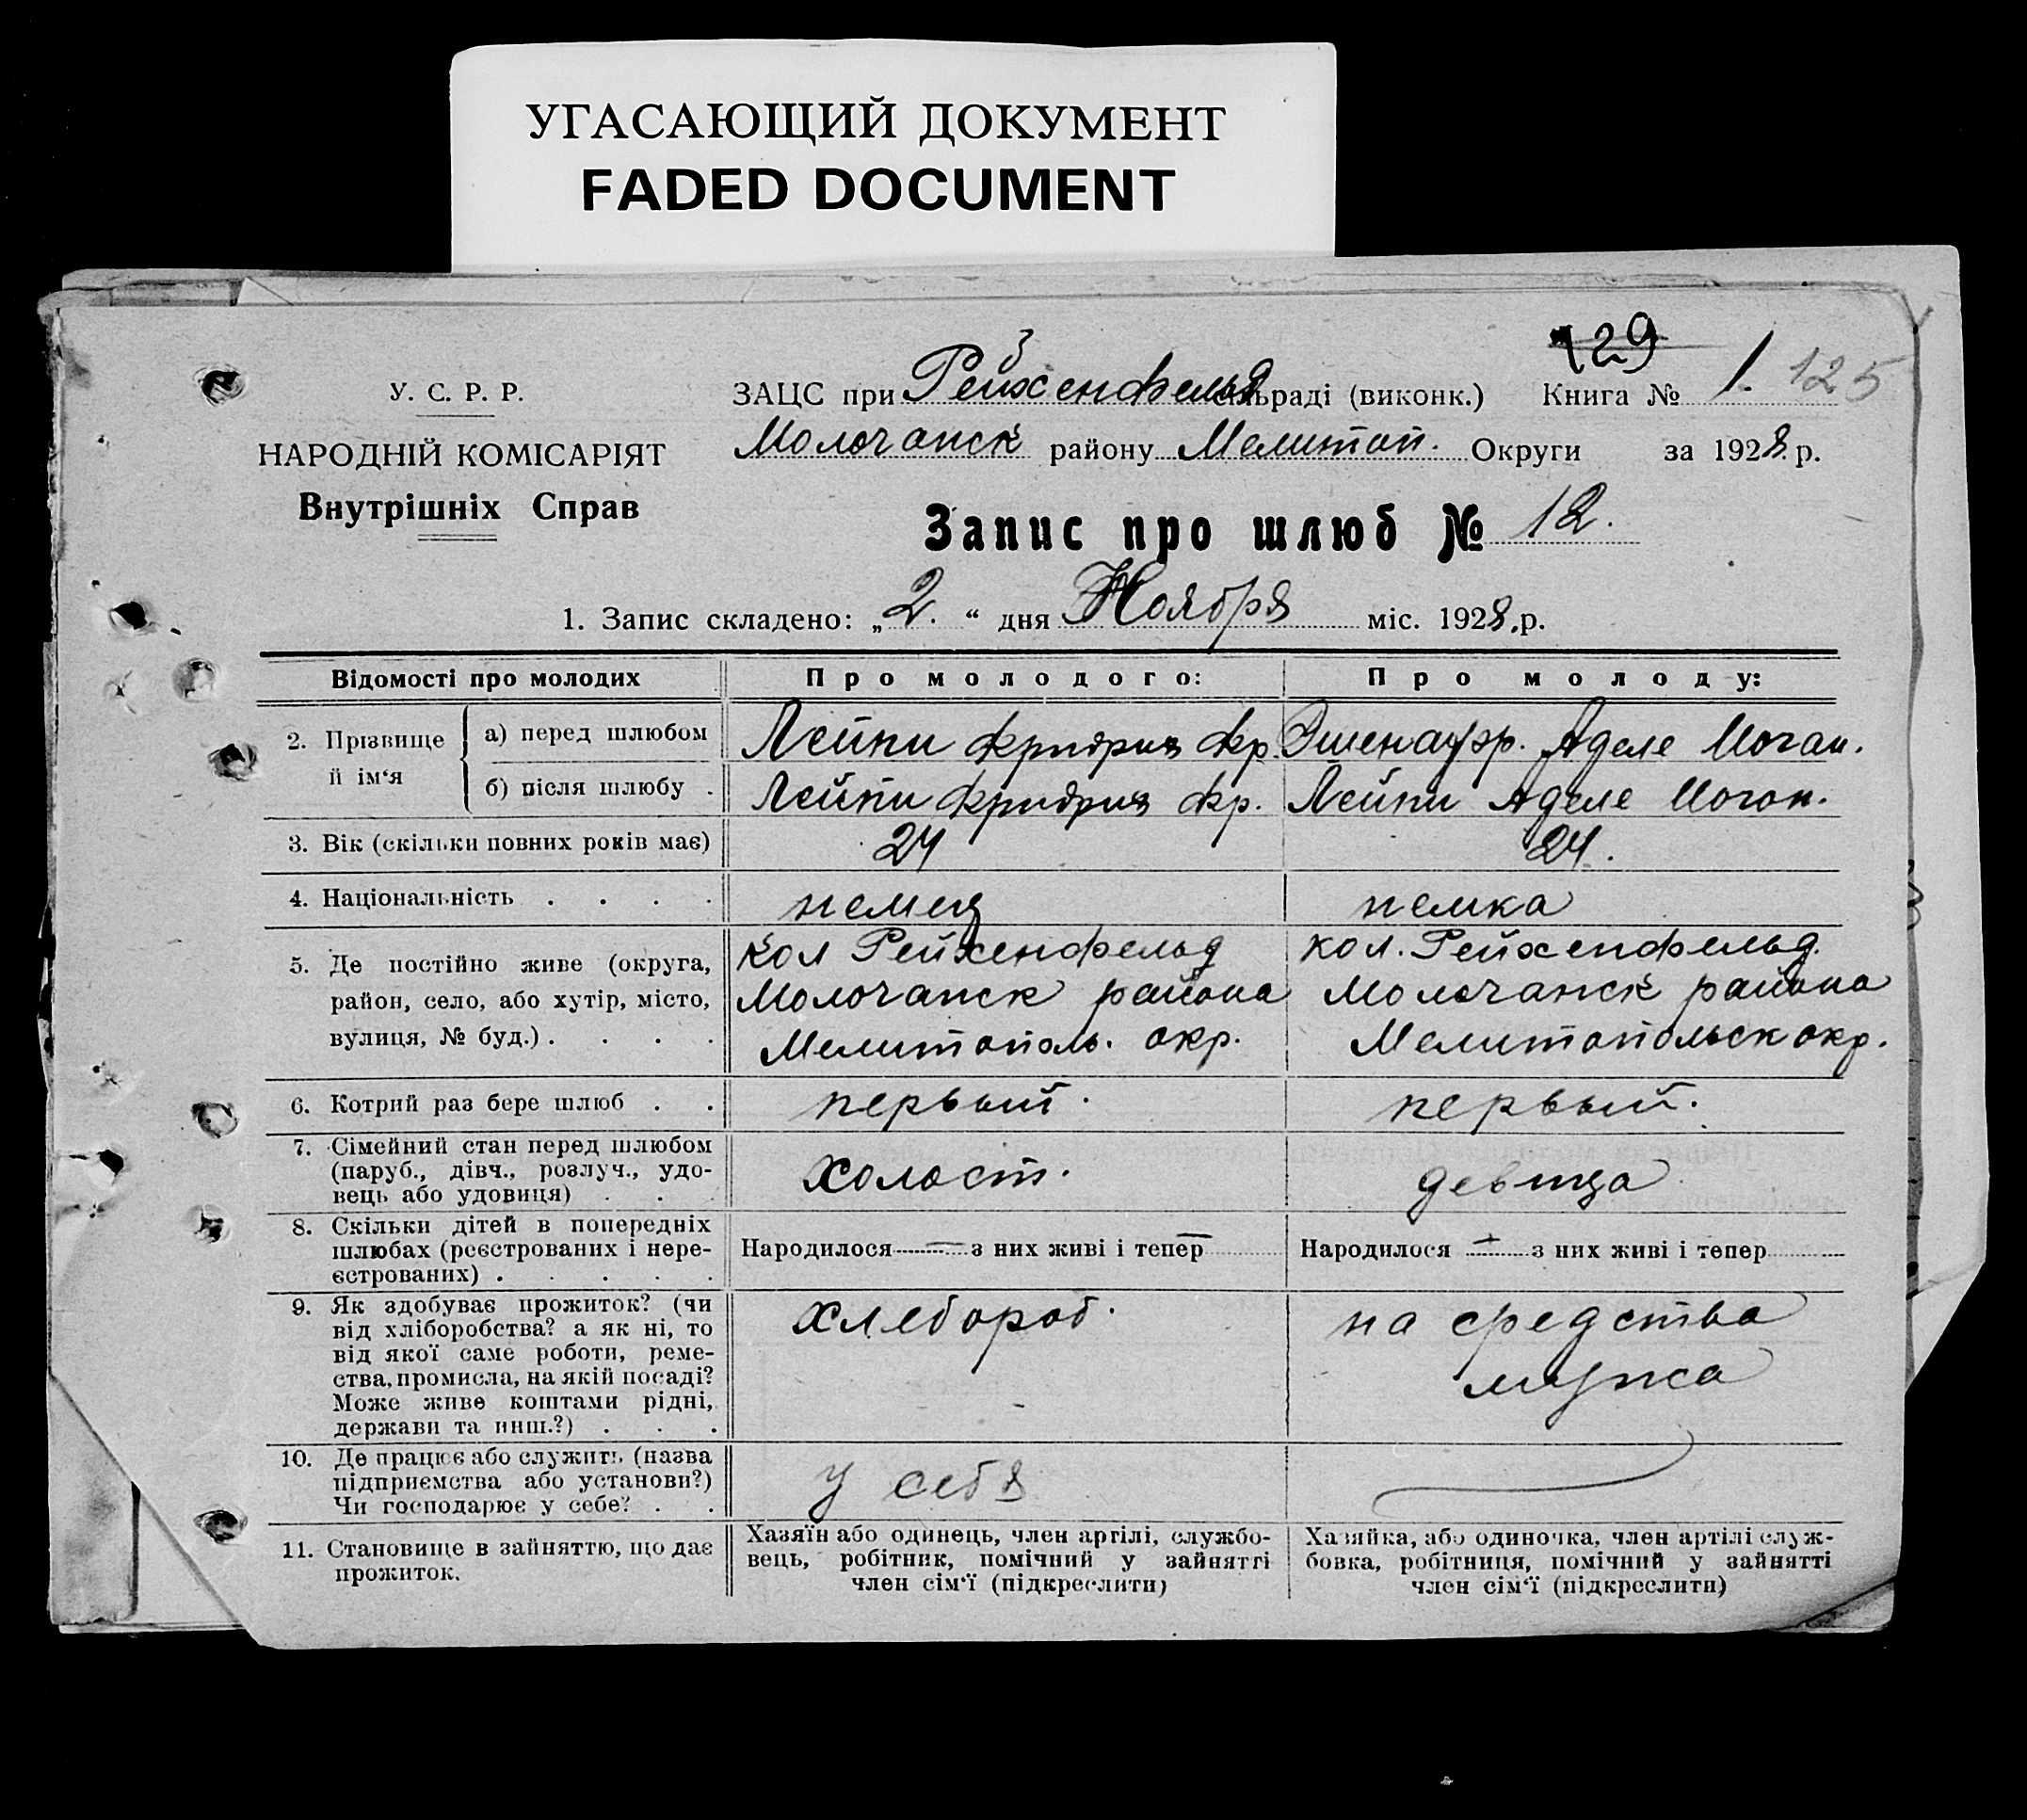 УГАСАЮЩИЙ ДОКУМЕНТ
FADED DOCUMENT
129
У. С. Р. Р.
ЗАЦС при Рейхенфельд льраді (виконк.) Книга № 1. 125
НАРОДНІЙ КОМІСАРІЯТ
Молочанск району Мелитоп. Округи за 1928 р.
Внутрішніх Справ
Запис про шлюб № 12.
1. Запис складено: „2.“ дня Ноября міс. 1928.р.
Відомості про молодих
Про молодого:
Про молоду:
2. Прізвище й ім‘я
а) перед шлюбом
Лейпи Фридрих Фр.
Эшенауэр. Аделе Иоган.
б) після шлюбу .
Лейпи Фридрих Фр.
Лейпи Аделе Иоган.
3. Вік (скільки повних років має)
24
24.
4. Національність . . . .
немец
немка
5. Де постійно живе (округа,
район, село, або хутір, місто,
вулиця, № буд.) . . . .
кол Рейхенфельд
Молочанск района
Мелитополь. окр.
кол. Рейхенфельд.
Молочанск района
Мелитопольск окр.
6. Котрий раз бере шлюб . .
первый.
первый.
7. Сімейний стан перед шлюбом
(паруб., дівч., розлуч., удо-
вець або удовиця) . . .
холост.
девица
8. Скільки дітей в попередніх
шлюбах (реєстрованих і нере-
єстрованих) . . . . .
Народилося — з них живі і тепер —
Народилося — з них живі і тепер
9. Як здобуває прожиток? (чи
від хліборобства? а як ні, то
від якої саме роботи, реме-
ства, промисла, на якій посаді?
Може живе коштами рідні,
держави та инш.?) . . .
хлебороб.
на средства
мужа
10. Де працює або служить (назва
підприємства або установи?)
Чи господарює у себе? . .
у себя
11. Становище в зайняттю, що дає
прожиток.
Хазяїн або одинець, член артілі, службо-
вець, робітник, помічний у зайнятті
член сім‘ї (підкреслити)
Хазяйка, або одиночка, член артілі служ-
бовка, робітниця, помічний у зайнятті
член сім‘ї (підкреслити)